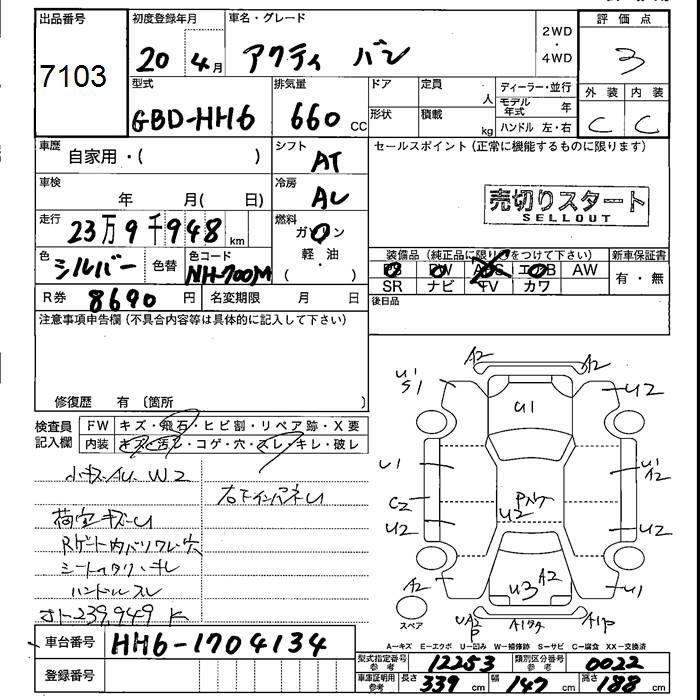 出品番号
7103
初度登録年月
20年 4月
車名・グレード
アクティ バン
2WD
・
4WD
評価点
3
外装 内装
C C
型式
GBD-HH6
排気量
660 CC
ドア
定員
人
形状
積載
kg
ディーラー・並行
モデル年式 年
ハンドル 左・右
車歴
自家用・( )
シフト
AT
セールスポイント(正常に機能するものに限ります)
売切りスタート
SELLOUT
車検
年 月( 日)
冷房
AC
走行
23万9千948km
燃料
ガソリン
軽・油
( )
色
シルバー
色替
色コード
NH-700M
装備品(純正品に限り○をつけて下さい)
PS PW ABS エアB AW
SR ナビ TV カワ
新車保証書
有・無
R券 8690円
名変期限 月 日
後日品
注意事項申告欄(不具合内容等は具体的に記入して下さい)
修復歴 有〔箇所 〕
検査員記入欄
FW キズ・飛石・ヒビ割・リペア跡・X要
内装 キズ・汚レ・コゲ・穴・スレ・キレ・破レ
小キズAU W2
荷室キズU
Rゲート内バリワレ穴
シートヘタリ・キレ
ハンドルスレ
オト239,949K
右下インパネU
A2 A2
U1 S1
U2
U1
U1
U1 A2
C2
Pハゲ
U2
U2
U2
A2
U3 A2
U1
スペア
UA2 P
A1P
A=キズ E=エクボ U=凹み W=補修跡 S=サビ C=腐食 XX=交換済
車台番号 HH6-1704134
登録番号
型式指定番号 参考 12253
類別区分番号 参考 0022
車庫証明用 参考 長さ 339cm 幅 147cm 高さ 188cm